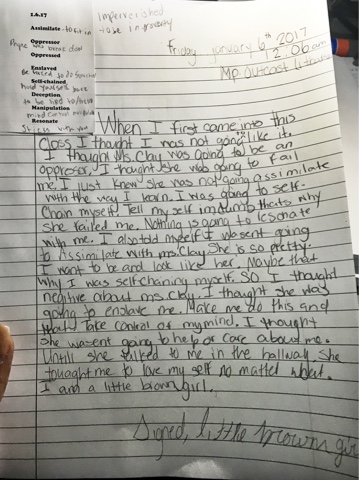 1.6.17
Assimilate - to fit in
Oppressor
Oppressed
Enslaved
Be forced to do
Self-chained
hold yourself back
Deception
to be lied to
Manipulation
mind control
Resonate
Sticks with you
Impoverished
to be in poverty
Friday January 6th 2017
12:06am
MP: outcast
When I first came into this
Class I thought I was not going like it.
I thought Ms. Clay was going to be an
oppresor. I thought she was going to fail
me. I just knew she was not going assimilate
with the way I learn. I was going to self-
Chain myself. Tell my self imdumb thats why
she failed me. Nothing is going to resonate
with me. I also told myself I wasent going
to Assimilate with ms.Clay. She is so pretty.
I want to be and look like her. Maybe that
Why I was self-chaning myself. SO I thought
negitive about ms. Clay. I thought she was
going to enslave me. Make me do this and
that. Take control of my mind. I thought
she wasent going to help or care about me.
Untill she talked to me in the hallway. She
tought me to love my self no matter what.
I am a little brown girl.
Signed, little brown girl